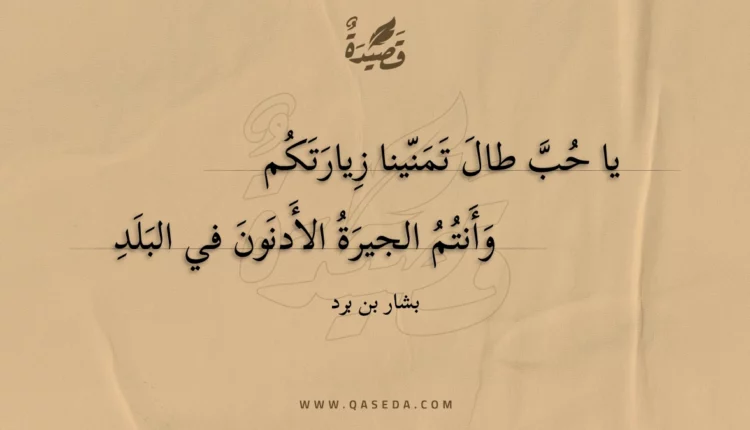 قَصِيدَةٌ
يا حُبَّ طالَ تَمَنّينا زِيارَتَكُم
وَأَنتُمُ الجيرَةُ الأَدنَونَ في البَلَدِ
بشار بن برد
WWW.QASEDA.COM